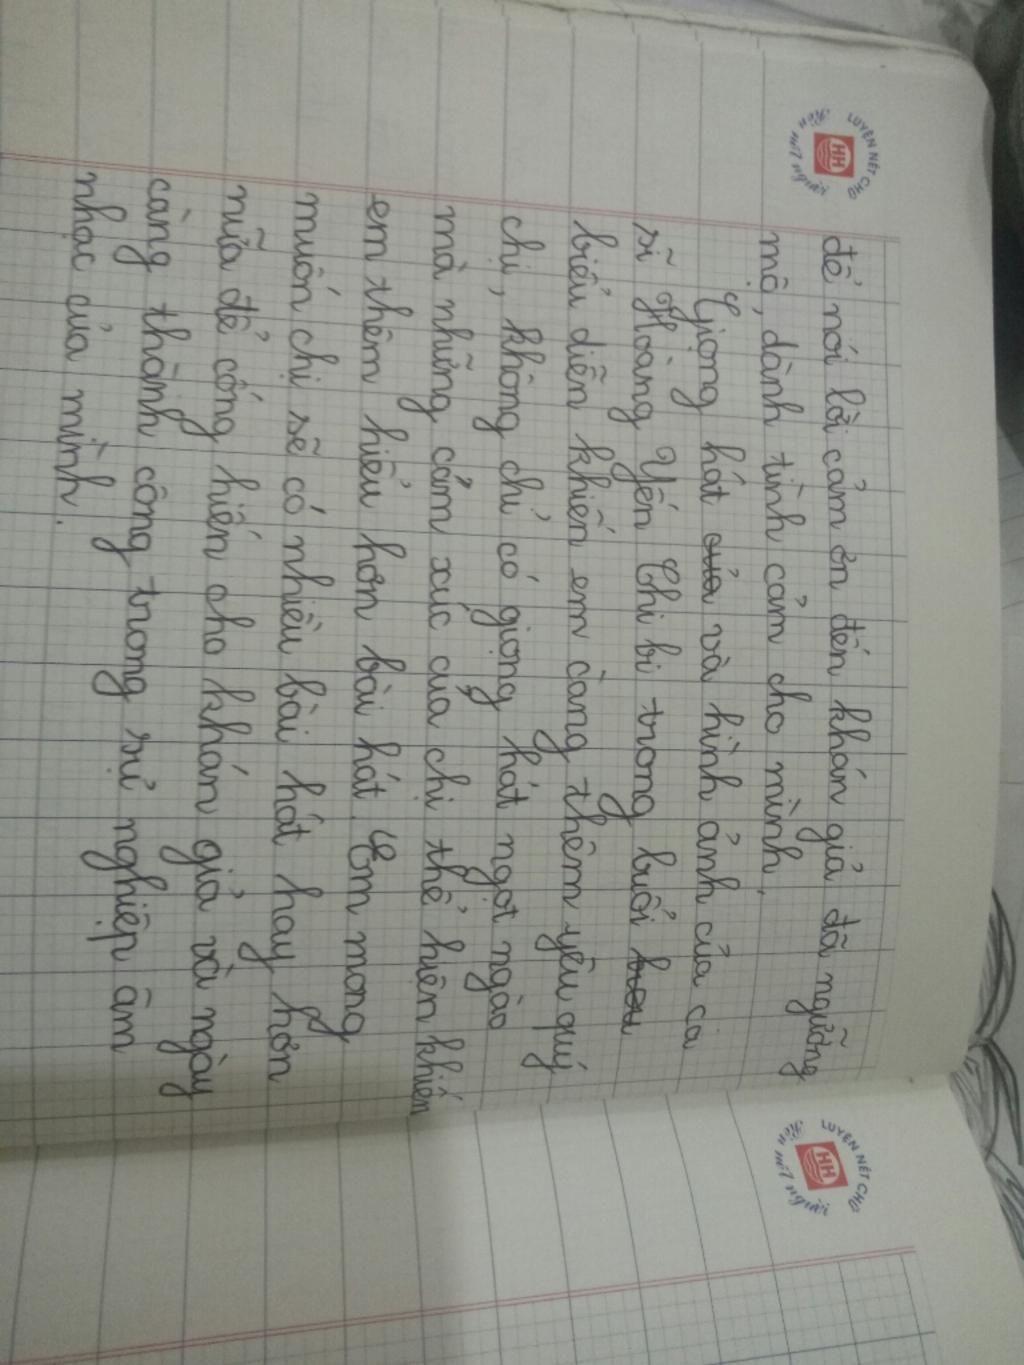 LUYỆN NÉT CHỮ
Rèn nết người
HH
để nói lời cảm ơn đến khán giả đã ngưỡng
mộ, dành tình cảm cho mình.
Giọng hát của và hình ảnh của ca
sĩ Hoàng Yến Chi bi trong buổi
biểu diễn khiến em càng thêm yêu quý
chị, không chỉ có giọng hát ngọt ngào
mà những cảm xúc của chị thể hiện khiến
em thêm hiểu hơn bài hát. Em mong
muốn chị sẽ có nhiều bài hát hay hơn
nữa để cống hiến cho khán giả và ngày
càng thành công trong sự nghiệp âm
nhạc của mình.
LUYỆN NÉT CHỮ
Rèn nết người
HH